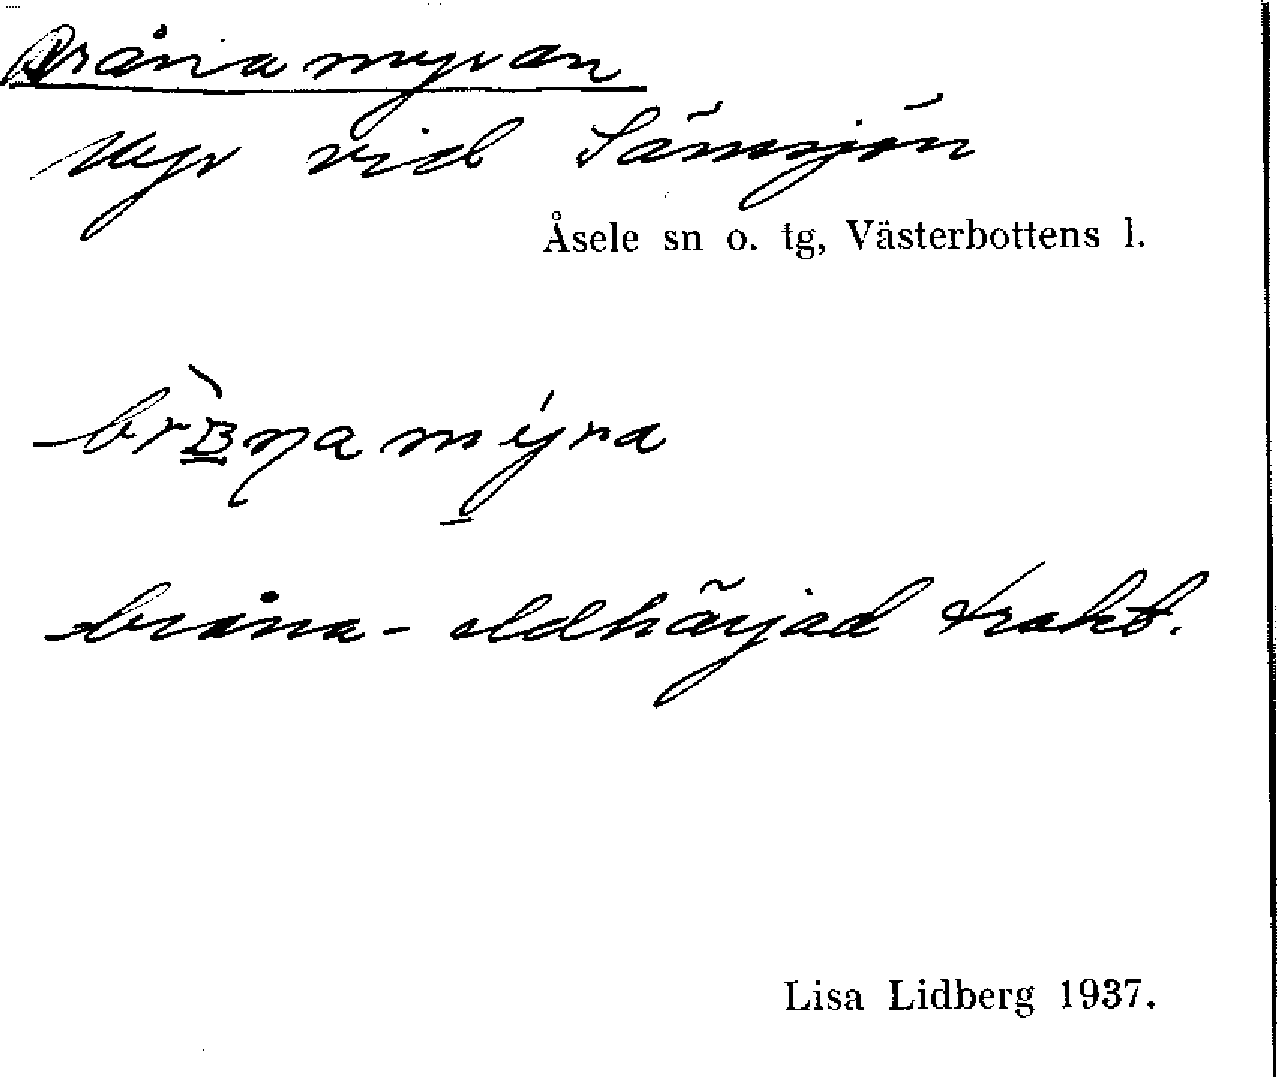 Brånamyran
Myr vid Sämsjön
Åsele sn o. tg, Västerbottens l.
bråna - eldhärjad trakt.
Lisa Lidberg 1937.